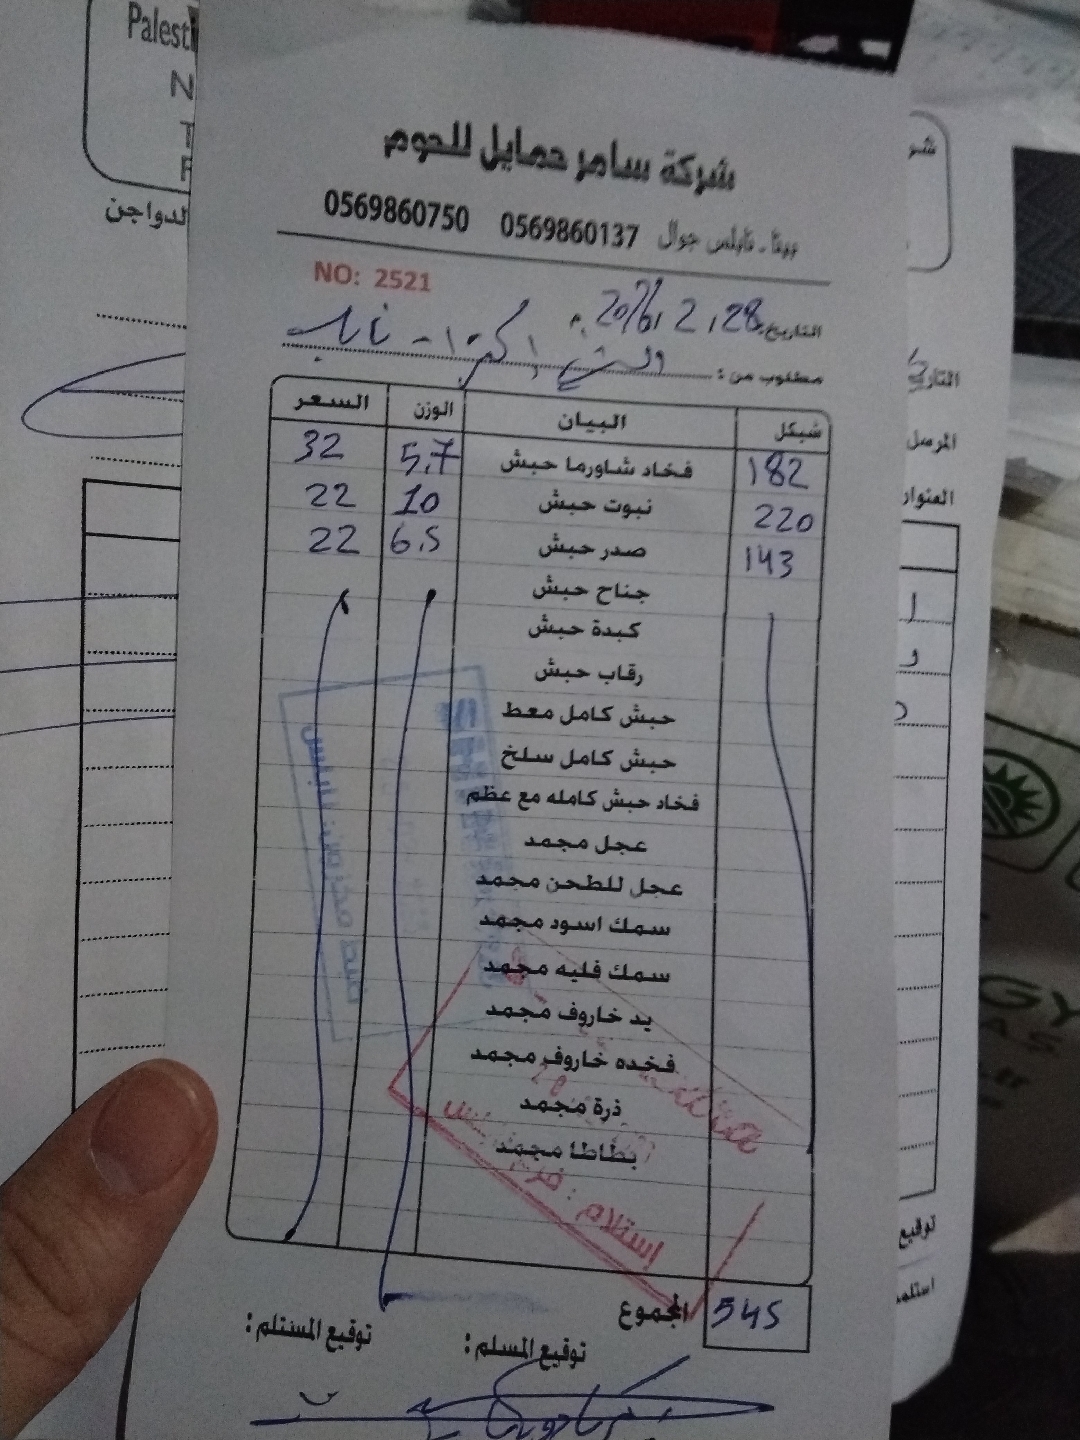 شركة سامر حمايل للحوم
بيتا - نابلس جوال 0569860137 0569860750
NO: 2521
التاريخ: 28 , 2 ,
مطلوب من :
شيكل البيان الوزن السعر
182 فخاد شاورما حبش 5.7 32
220 نبوت حبش 10 22
143 صدر حبش 6.5 22
جناح حبش
كبدة حبش
رقاب حبش
حبش كامل معط
حبش كامل سلخ
فخاد حبش كامله مع عظم
عجل مجمد
عجل للطحن مجمد
سمك اسود مجمد
سمك فليه مجمد
يد خاروف مجمد
فخده خاروف مجمد
ذرة مجمد
بطاطا مجمد
استلام :
المجموع 545
توقيع المسلم : توقيع المستلم :
لدواجن
التاريخ
المرسل
العنوان
توقيع